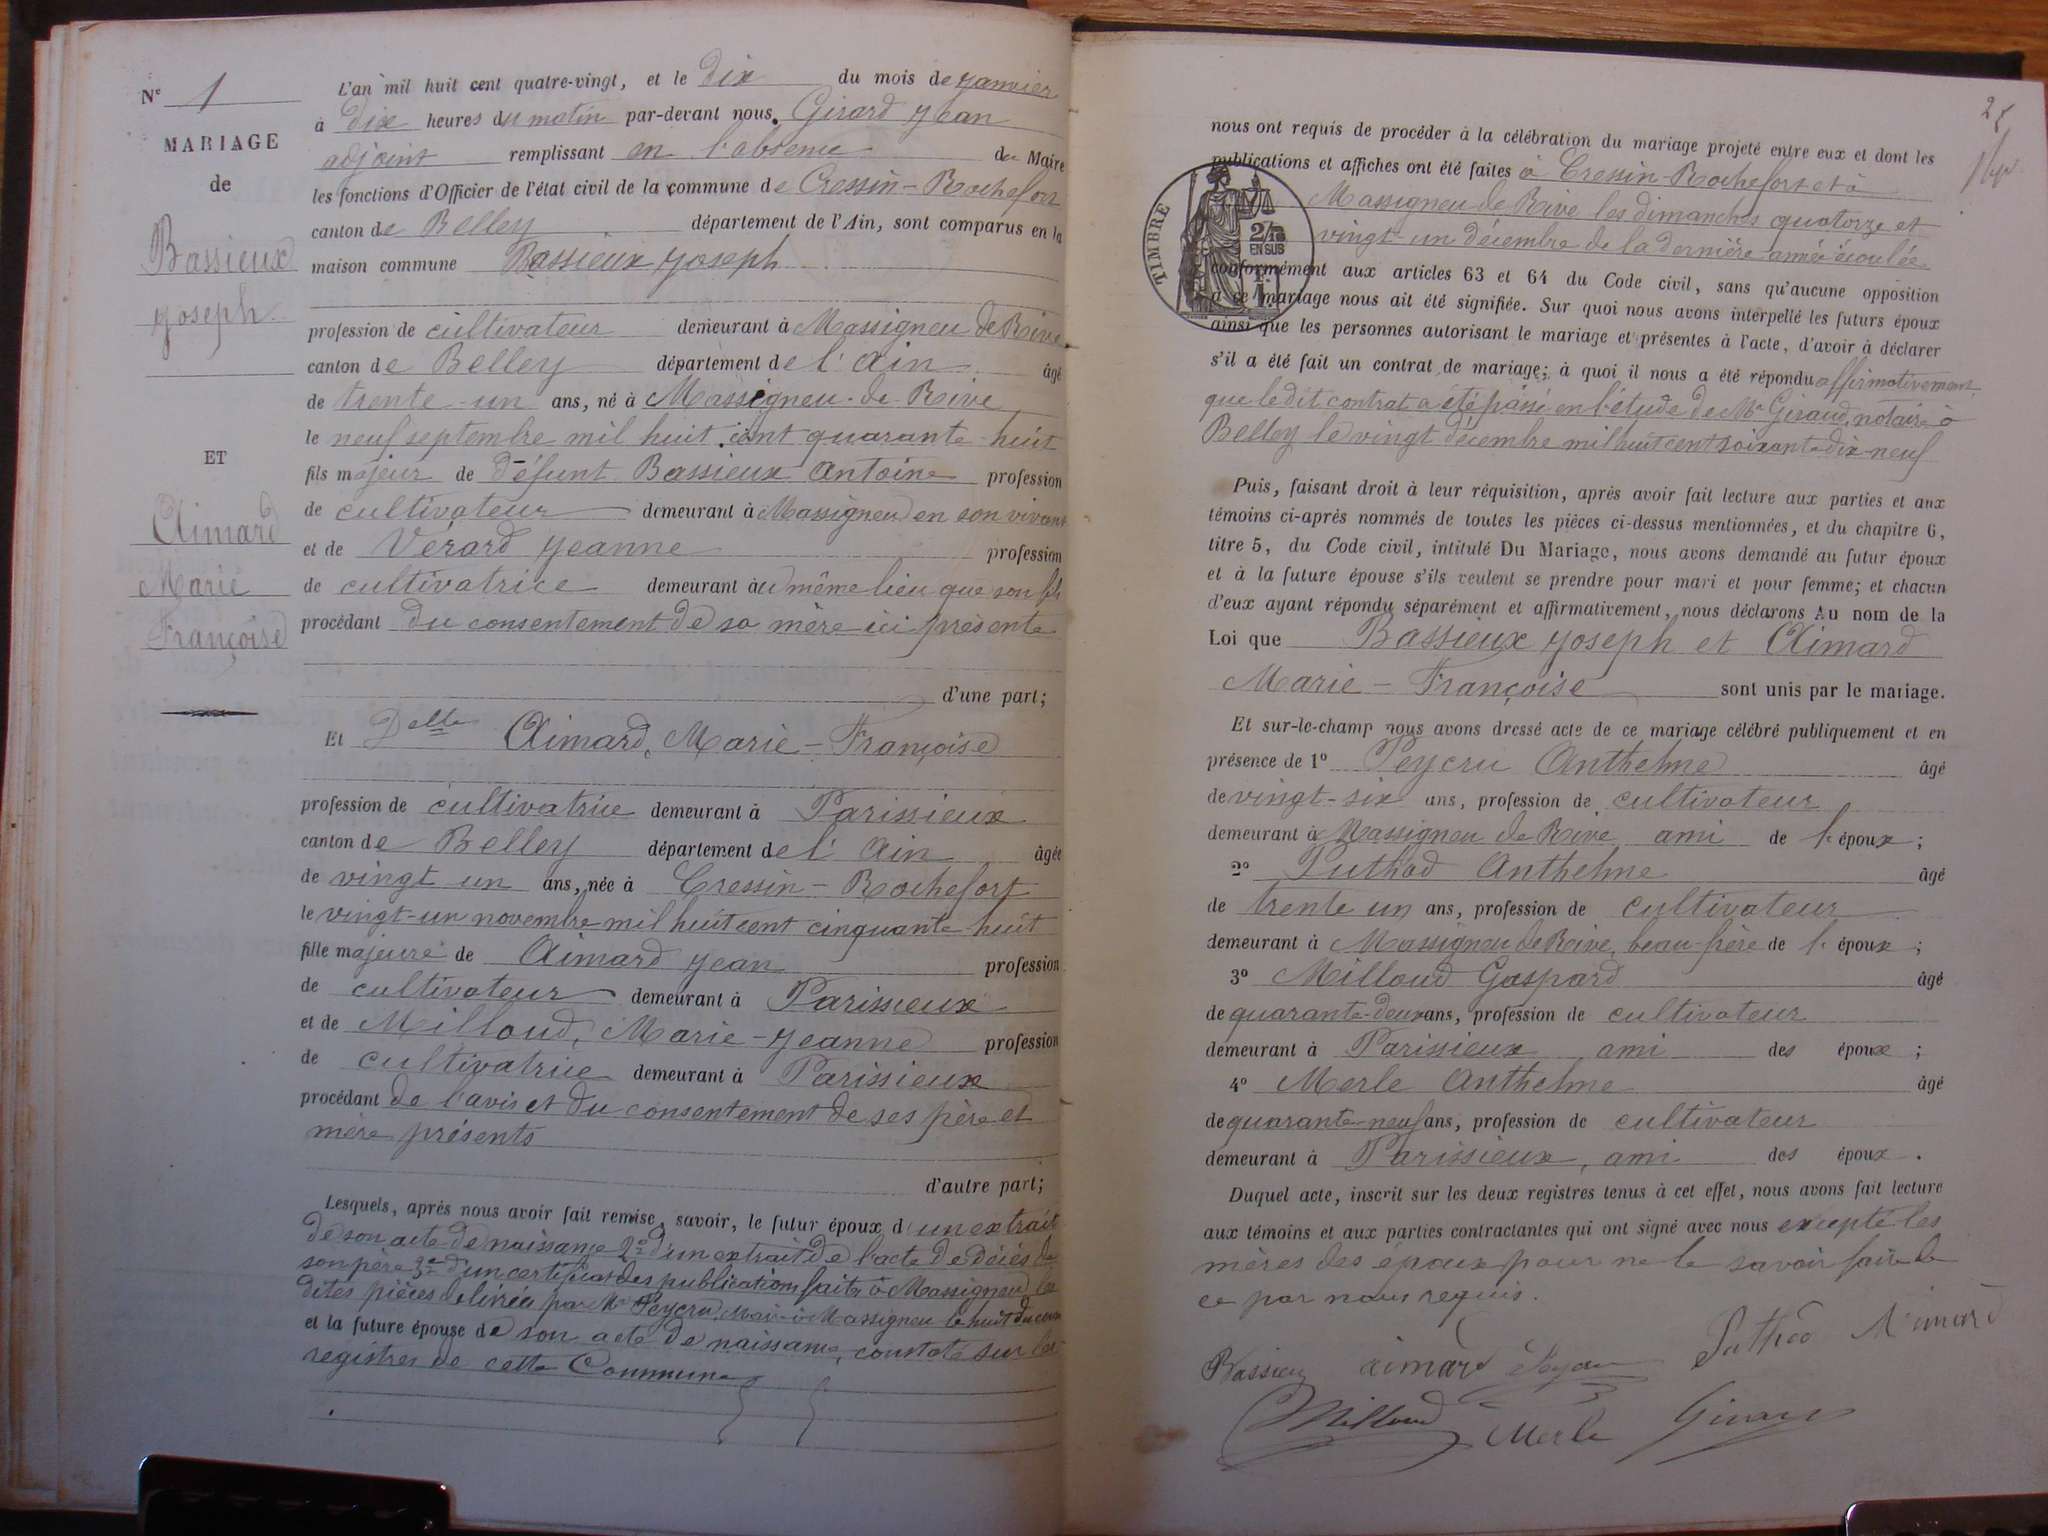 N° 1
MARIAGE
de
Bassieux
Joseph
ET
Aimard
Marie
Françoise
L'an mil huit cent quatre-vingt, et le dix du mois de Janvier
à dix heures du matin par-devant nous, Girard Jean
adjoint remplissant en l'absence du Maire
les fonctions d'Officier de l'état civil de la commune de Cressin-Rochefort
canton de Belley département de l'Ain, sont comparus en la
maison commune Bassieux Joseph
profession de cultivateur demeurant à Massigneu de Rive
canton de Belley département de l'Ain âgé
de trente-un ans, né à Massigneu-de-Rive
le neuf septembre mil huit cent quarante-huit
fils majeur de défunt Bassieux Antoine profession
de cultivateur demeurant à Massigneu en son vivant
et de Vérard Jeanne profession
de cultivatrice demeurant au même lieu que son fils
procédant du consentement de sa mère ici présente
d'une part;
Et Delle Aimard, Marie-Françoise
profession de cultivatrice demeurant à Parissieux
canton de Belley département de l'Ain âgée
de vingt un ans, née à Cressin-Rochefort
le vingt-un novembre mil huit cent cinquante-huit
fille majeure de Aimard Jean profession
de cultivateur demeurant à Parissieux
et de Milloud, Marie-Jeanne profession
de cultivatrice demeurant à Parissieux
procédant de l'avis et du consentement de ses père et
mère présents
d'autre part;
Lesquels, après nous avoir fait remise, savoir, le futur époux d'un extrait
de son acte de naissance 2° d'un extrait de l'acte de décès de
son père 3° d'un certificat des publications faites à Massigneu, les
dites pièces délivrées par Mr Peycru, Maire à Massigneu le huit du courant
et la future épouse de son acte de naissance, constaté sur les
registres de cette Commune
25
nous ont requis de procéder à la célébration du mariage projeté entre eux et dont les
publications et affiches ont été faites à Cressin-Rochefort et à
Massigneu de Rive les dimanches quatorze et
vingt-un décembre de la dernière année écoulée
conformément aux articles 63 et 64 du Code civil, sans qu'aucune opposition
à ce mariage nous ait été signifiée. Sur quoi nous avons interpellé les futurs époux
ainsi que les personnes autorisant le mariage et présentes à l'acte, d'avoir à déclarer
s'il a été fait un contrat de mariage; à quoi il nous a été répondu affirmativement
que le dit contrat a été passé en l'étude de Me Giraud, notaire à
Belley le vingt décembre mil huit cent soixante dix-neuf
TIMBRE
2/10
EN SUS
1 F.
Puis, faisant droit à leur réquisition, après avoir fait lecture aux parties et aux
témoins ci-après nommés de toutes les pièces ci-dessus mentionnées, et du chapitre 6,
titre 5, du Code civil, intitulé Du Mariage, nous avons demandé au futur époux
et à la future épouse s'ils veulent se prendre pour mari et pour femme; et chacun
d'eux ayant répondu séparément et affirmativement, nous déclarons Au nom de la
Loi que Bassieux Joseph et Aimard
Marie-Françoise sont unis par le mariage.
Et sur-le-champ nous avons dressé acte de ce mariage célébré publiquement et en
présence de 1° Peycru Anthelme âgé
de vingt-six ans, profession de cultivateur
demeurant à Massigneu de Rive ami de l'époux;
2° Puthod Anthelme âgé
de trente un ans, profession de cultivateur
demeurant à Massigneu de Rive, beau-frère de l'époux;
3° Milloud Gaspard âgé
de quarante-deux ans, profession de cultivateur
demeurant à Parissieux ami des époux;
4° Merle Anthelme âgé
de quarante-neuf ans, profession de cultivateur
demeurant à Parissieux, ami des époux.
Duquel acte, inscrit sur les deux registres tenus à cet effet, nous avons fait lecture
aux témoins et aux parties contractantes qui ont signé avec nous excepté les
mères des époux pour ne le savoir faire de
ce par nous requis.
Bassieux aimard Peycru Puthod Aimard
Milloud Merle Girard